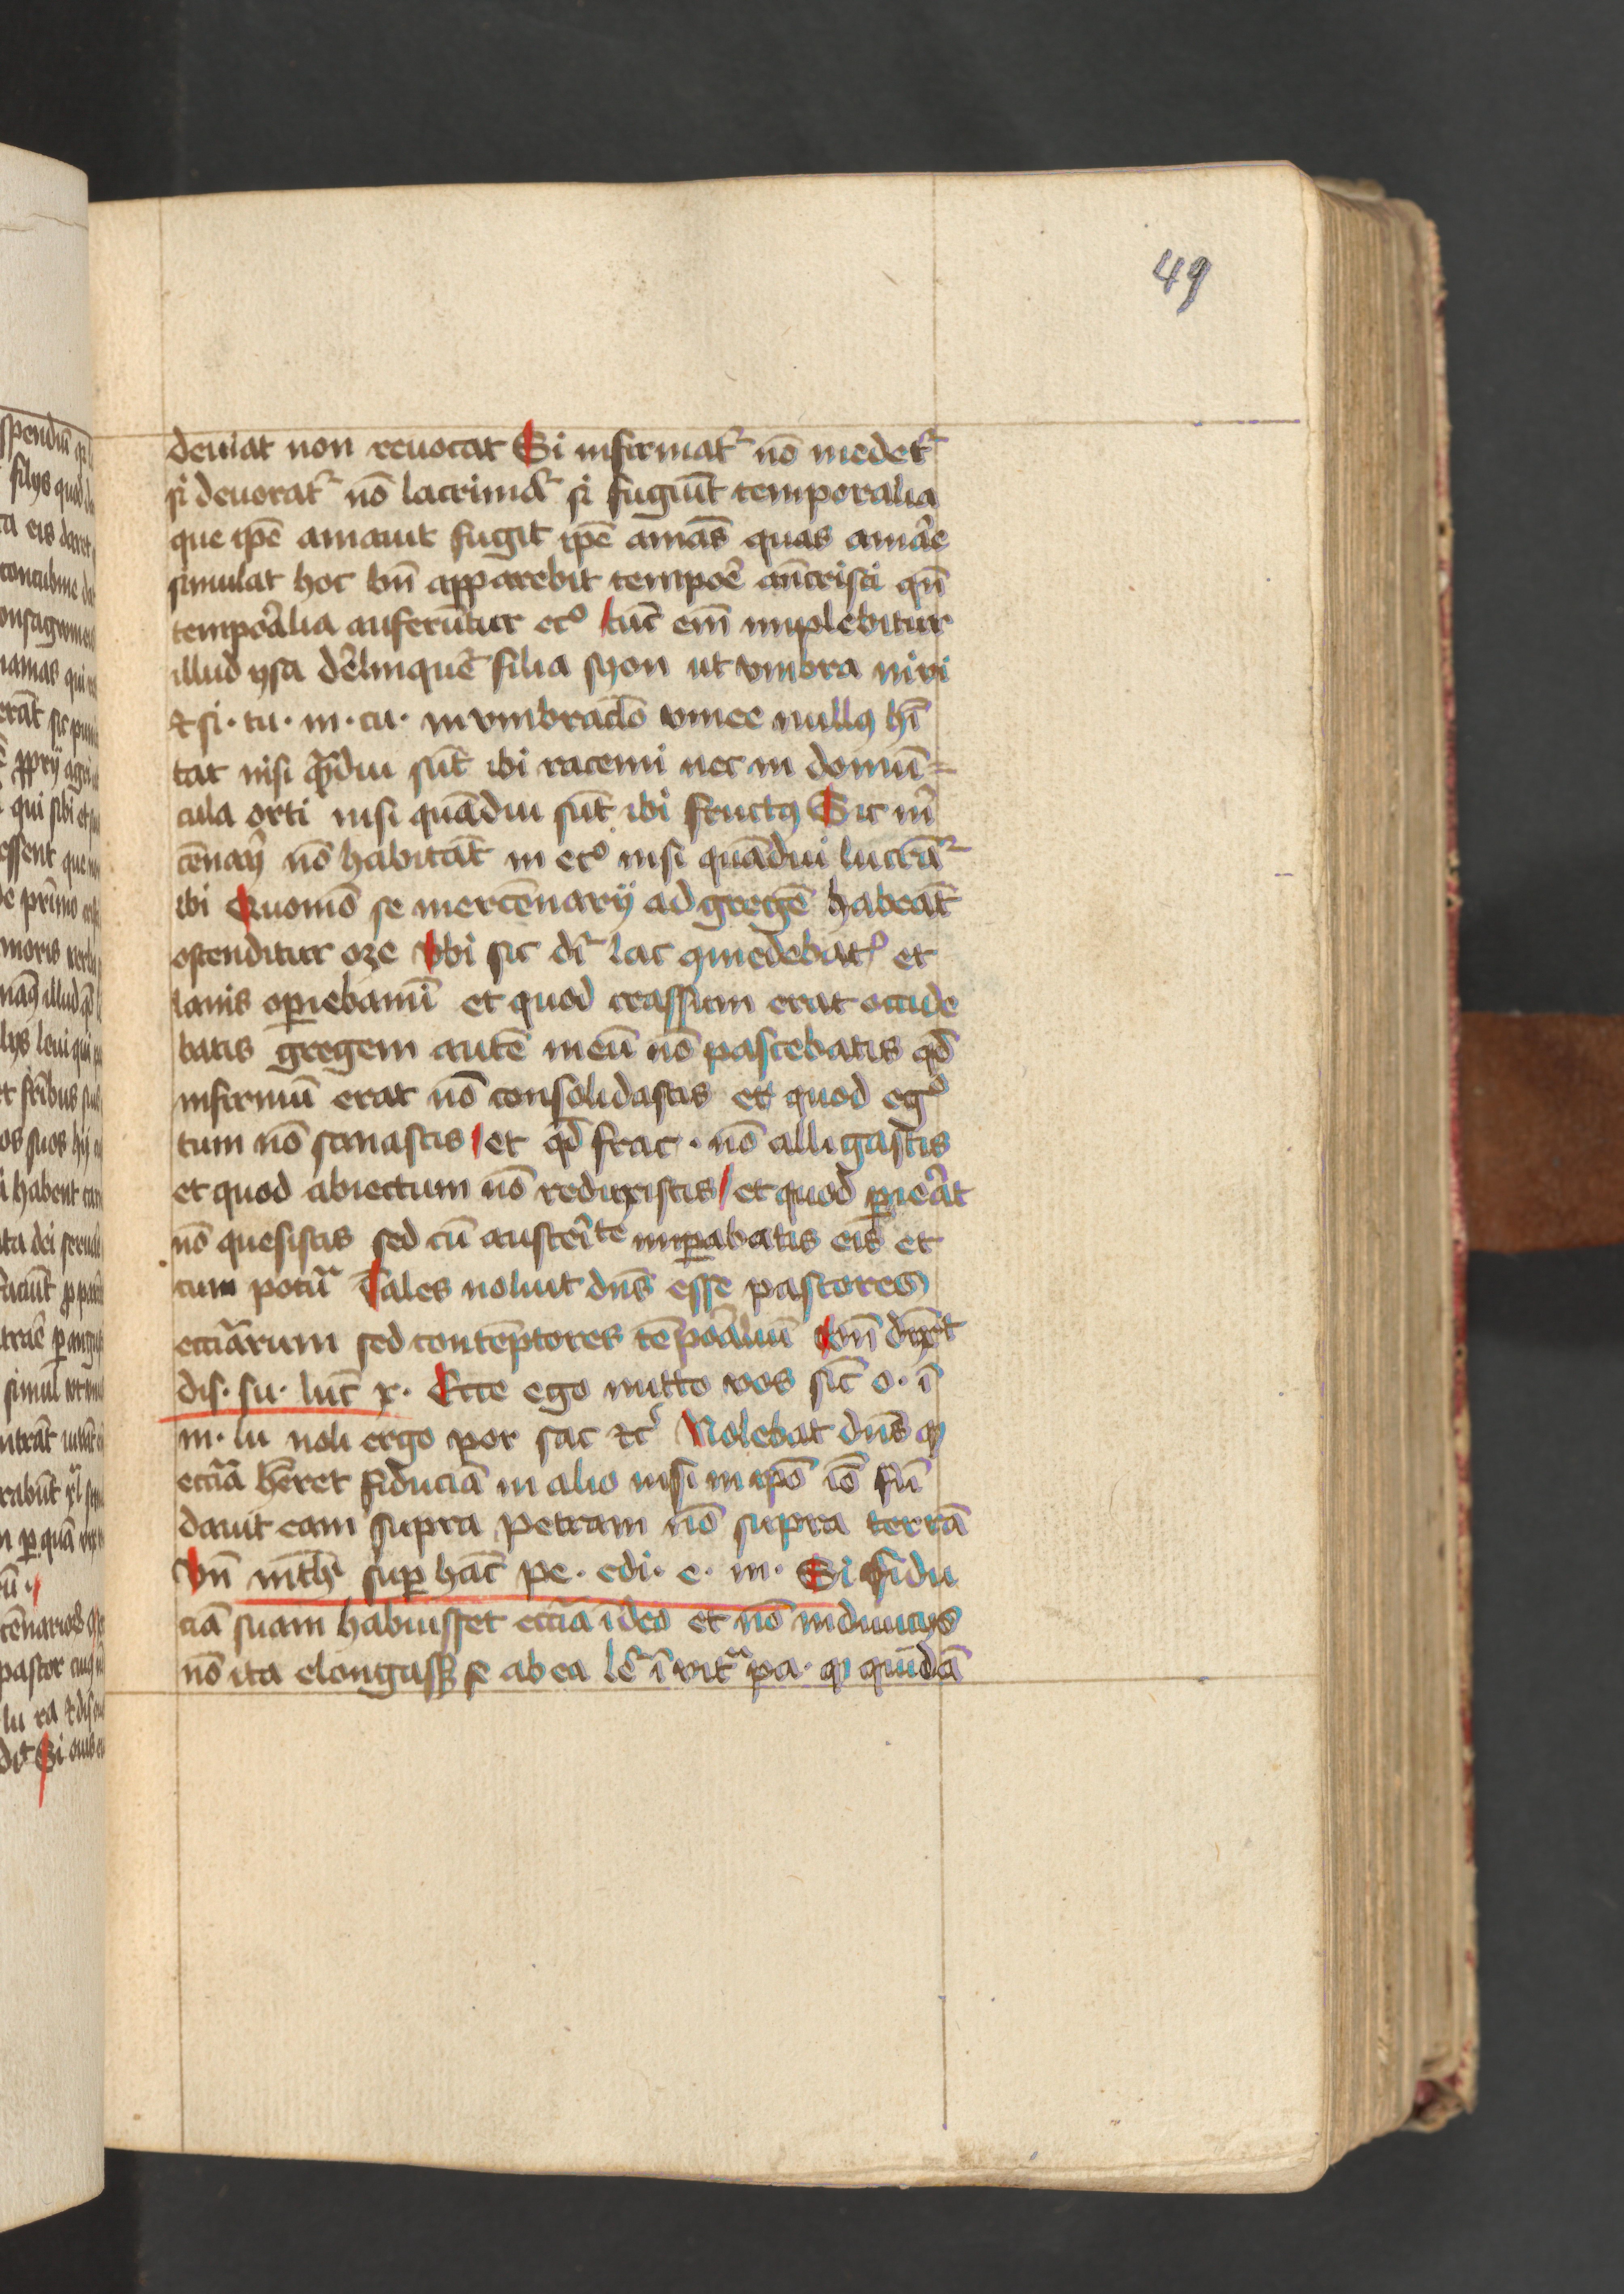 49
deuiat non reuocat Si infirmat᷑ nō medet᷑
si deuorat᷑ nō lacrimat᷑ si fugiūt temporalia
que ip̄e amauit fugit ip̄e amās quas amar̄e
simulat hoc bn̄ apparebit tempor̄e an̄cristi qn̄
tempor̄alia auferūtur ecᵒ tūc em̄ implebitur
illud ysa der̄linquet̄ filia syon ut vmbra in vi
⁊ si· tu· in· cu· in vmbraclō vinee nullꝰ hī
tat nisi qᵃ̄diu sūt ibi racemi nec in domū=
cula orti nisi quādiu sūt ibi fructꝰ Sic m̄
cēnarij nō habitāt in ecᵒ nisi quādiu lucrāt᷑
ibi Quomō se mercēnarij ad gregē habeāt
ostenditur oze Vbi sic dr̄ lac qmedebat᷑ et
lanis oꝑiebamī et quod crassum erat occide
batis gregem autē meū nō pascebatis qd̄
infirmū erat nō consolidastis et quod egᵒ
tum nō sanastis et qd̄ frac· nō alligastis
et quod abiectum nō reduxistis et quod ꝑier̄at
nō quesistis sed cū austeriᵗᵉ imꝑabatis eis et
cum potᵃ̄ Tales noluit dn̄s esse pastores
eccīarum sed contēptores tēpor̄aliū Vn̄ dixit
dis· su· luc̄ x· Ecce ego mitto vos sic̄ o· ī
m· lu noli ergo por sac ⁊c̄ Nolebat dn̄s ꝙ
eccīa hēret fiduciā in alio nisi in ip̄o iō fū
dauit eam supra petram nō supra terrā
Vn̄ mth̄ suꝑ hāc pe· edi· e· m· Si fidu
ciā suam habuisset eccīa ī deo et nō in diuicijs
nō ita elongasset se ab ea lēr̄ ī vitᵃ pa· ꝙ quidā